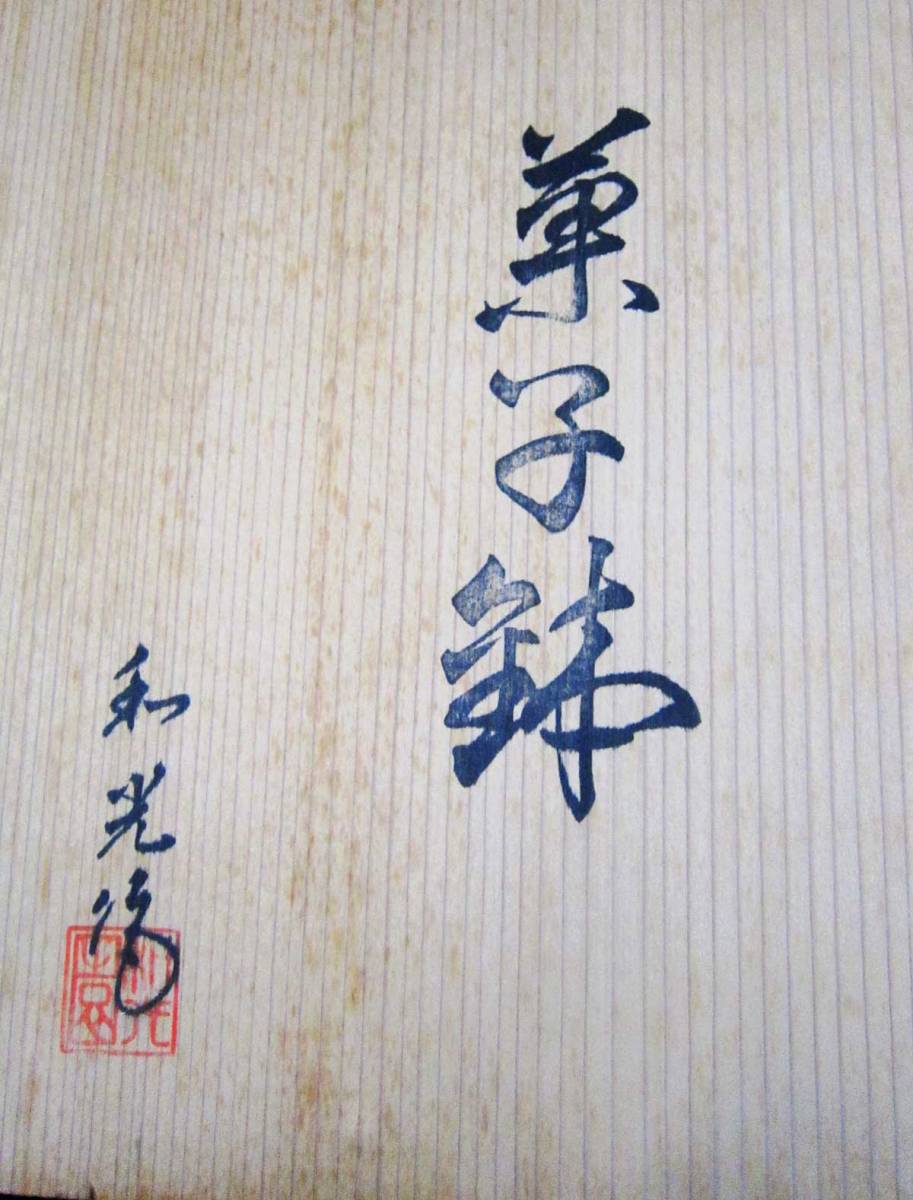 菓子鉢
和光作